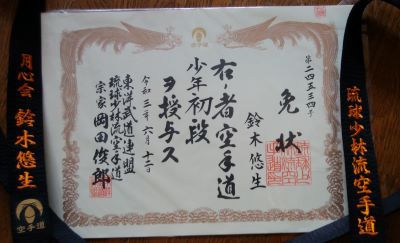 空手道
第二四五三四号
免状
鈴木悠生
右ノ者空手道
少年初段
ヲ授与ス
令和三年六月十二日
東洋武道連盟
琉球少林流空手道
宗家 岡田俊郎
月心会 鈴木悠生
空手道
琉球少林流空手道